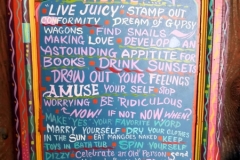 "LIVE JUICY" STAMP OUT
CONFORMITY • DREAM OF GYPSY
WAGONS • FIND SNAILS
MAKING LOVE • DEVELOP AN
ASTOUNDING APPITITE FOR
BOOKS • DRINK SUNSETS
DRAW OUT YOUR FEELINGS
AMUSE YOUR SELF • STOP
WORRYING • BE RIDICULOUS
NOW! IF NOT NOW WHEN?
MAKE YES YOUR FAVORITE WORD
MARRY YOURSELF • DRY YOUR CLOTHES
IN THE SUN • EAT MANGOES NAKED • KEEP
TOYS IN BATH TUB • SPIN YOURSELF
DIZZY • Celebrate an Old Person • send